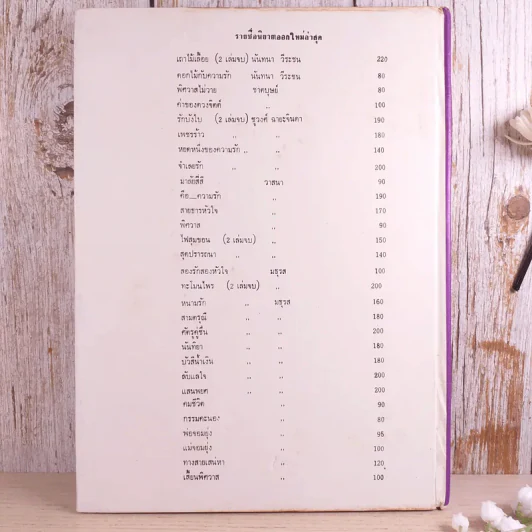 รายชื่อนิยายออกใหม่ล่าสุด
เถาไม้เลื้อย (2 เล่มจบ) นันทนา วีระชน 220
ดอกไม้กับความรัก นันทนา วีระชน 80
พิศวาสไม่วาย ราคบุษย์ 80
ค่าของดวงจิตต์ ,, 100
รักบังใบ (2 เล่มจบ) ชูวงศ์ ฉายะจินดา 190
เพชรร้าว ,, ,, 180
หยดหนึ่งของความรัก ,, ,, 140
จำเลยรัก ,, ,, 200
มาลัยสีสี วาสนา 90
คือ...ความรัก ,, 190
สายธารหัวใจ ,, 170
พิศวาส ,, 90
ไฟสุมขอน (2 เล่มจบ) ,, 150
สุดปรารถนา ,, ,, 140
สองรักสองหัวใจ มธุรส 100
ทะโมนไพร (2 เล่มจบ) ,, 200
หนามรัก ,, มธุรส 160
สามดรุณี ,, ,, 180
ศัตรูคู่ชื่น ,, ,, 200
นันทิยา ,, ,, 180
บัวสีน้ำเงิน ,, ,, 180
ลับแลใจ ,, ,, 200
แสนพยศ ,, ,, 200
คมชีวิต ,, 90
กรรมคะนอง ,, 80
พ่อจอมยุ่ง ,, 95
แม่จอมยุ่ง ,, 100
ทางสายเสน่หา ,, 120
เสี้ยนพิศวาส ,, 100